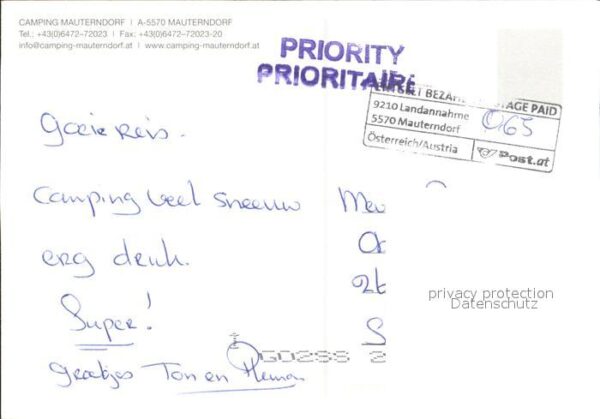 CAMPING MAUTERNDORF | A-5570 MAUTERNDORF
Tel.: +43(0)6472–72023 | Fax: +43(0)6472–72023-20
info@camping-mauterndorf.at | www.camping-mauterndorf.at
PRIORITY
PRIORITAIRE
BEZAHLT PAID
9210 Landannahme 065
5570 Mauterndorf
Österreich/Austria Post.at
Goeie Reis.
Camping veel sneeuw
erg druk.
Super!
Groetjes Ton en
privacy protection
Datenschutz